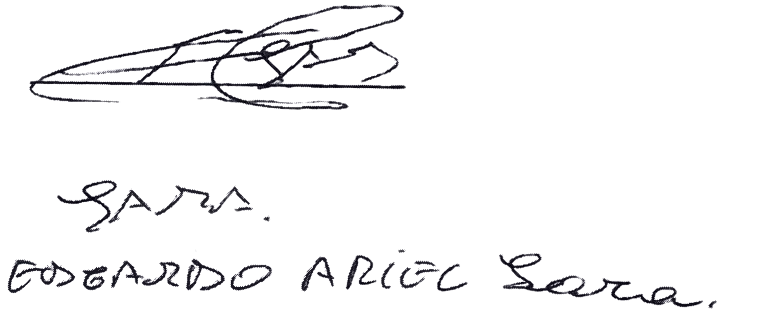 SARA.
EDGARDO ARIEL Sara.